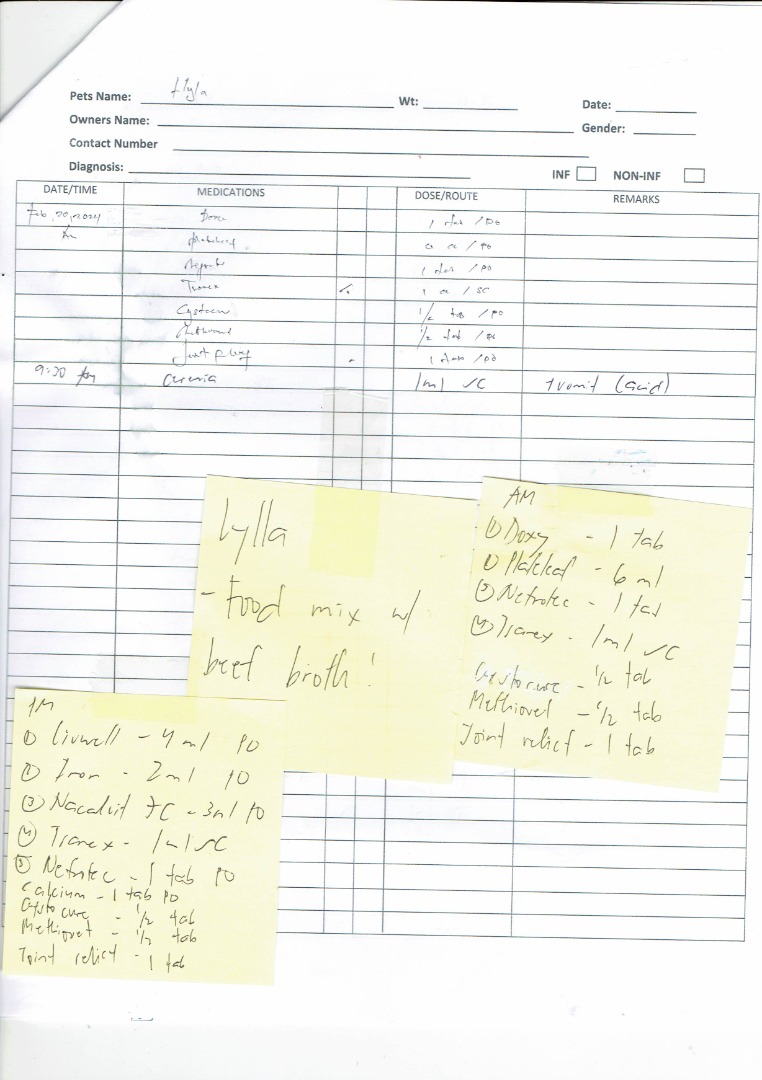 Pets Name: Wt: Date:
Owners Name: Gender:
Contact Number
Diagnosis: INF NON-INF
DATE/TIME MEDICATIONS DOSE/ROUTE REMARKS
Feb, 20, 2024
Tranex 1 cc / SC
1/2 tab / PO
9:30 Cerenia 1ml SC 1 vomit (acid)
Lylla
- Food mix w/
beef broth!
AM
① Doxy - 1 tab
② Plateleaf - 6 ml
③ Nefrotec - 1 tab
④ Tranex - 1ml SC
Cystocure - 1/2 tab
Methiovet - 1/2 tab
Joint relief - 1 tab
PM
① Livwell - 4 ml PO
② Iron - 2ml PO
③ Nacalvit FC - 3ml PO
④ Tranex - 1ml SC
⑤ Nefrotec - 1 tab PO
Calcium - 1 tab PO
Cystocure - 1/2 tab
Methiovet - 1/2 tab
Joint relief - 1 tab